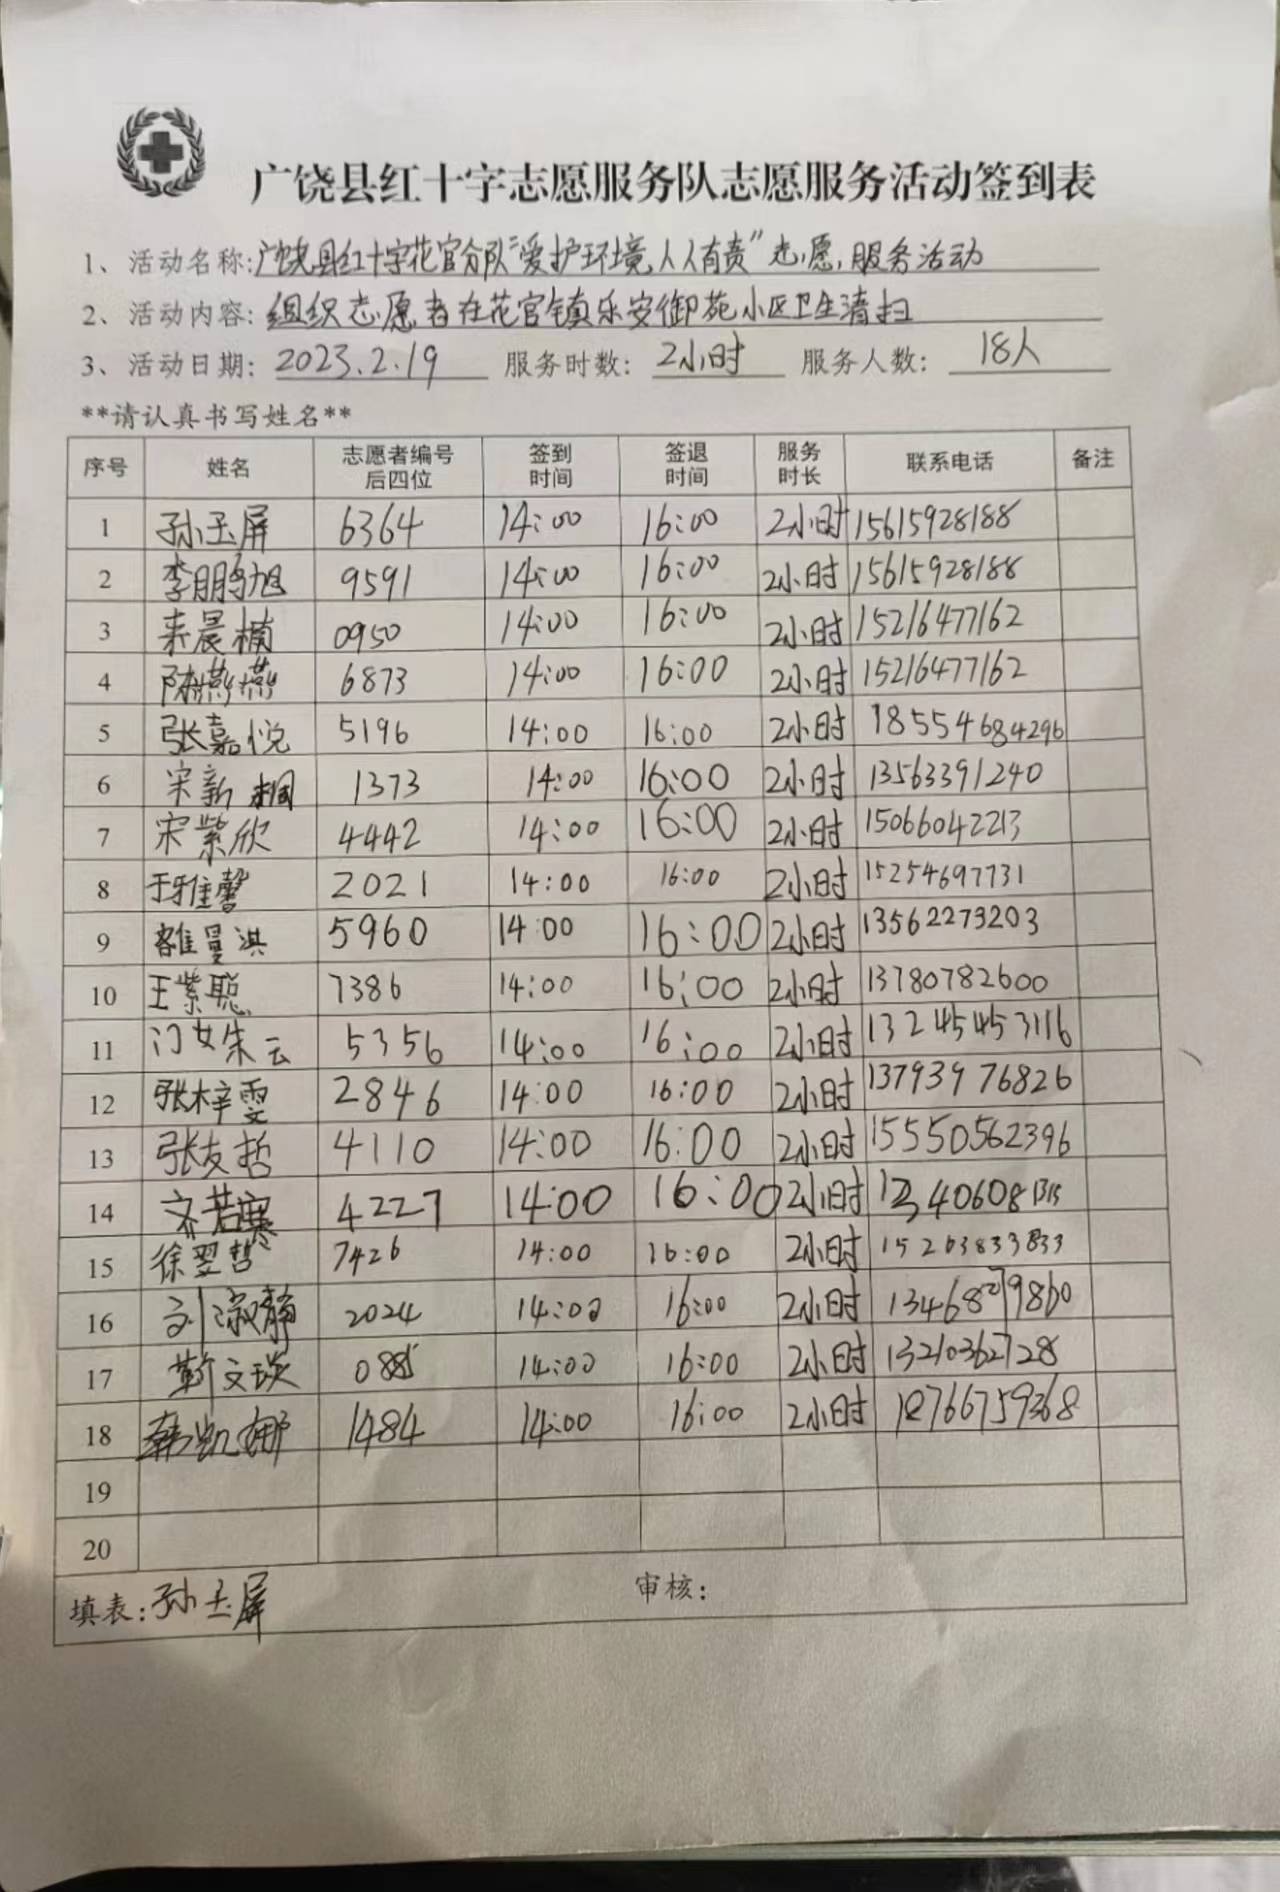 广饶县红十字志愿服务队志愿服务活动签到表
1、活动名称:广饶县红十字花官分队"爱护环境,人人有责"志愿服务活动
2、活动内容:组织志愿者在花官镇乐安御苑小区卫生清扫
3、活动日期:2023.2.19 服务时数:2小时 服务人数:18人
**请认真书写姓名**
序号 姓名 志愿者编号后四位 签到时间 签退时间 服务时长 联系电话 备注
1 孙玉屏 6364 14:00 16:00 2小时 15615928188
2 李鹏旭 9591 14:00 16:00 2小时 15615928188
3 来晨楠 0950 14:00 16:00 2小时 15216477162
4 陈燕燕 6873 14:00 16:00 2小时 15216477162
5 张嘉悦 5196 14:00 16:00 2小时 18554684296
6 宋新桐 1373 14:00 16:00 2小时 13563391240
7 宋紫欣 4442 14:00 16:00 2小时 15066042213
8 于雅馨 2021 14:00 16:00 2小时 15254697731
9 雒曼淇 5960 14:00 16:00 2小时 13562273203
10 王紫聪 7386 14:00 16:00 2小时 13780782600
11 门姝云 5356 14:00 16:00 2小时 13245453116
12 张梓雯 2846 14:00 16:00 2小时 13793976826
13 张友哲 4110 14:00 16:00 2小时 15550562396
14 齐若寒 4227 14:00 16:00 2小时
15 徐翌哲 7426 14:00 16:00 2小时 15263833833
16 刘淑静 2024 14:00 16:00 2小时 13468279860
17 靳文琰 14:00 16:00 2小时 13210362728
18 韩凯娜 1484 14:00 16:00 2小时 18766759368
19
20
填表:孙玉屏 审核: